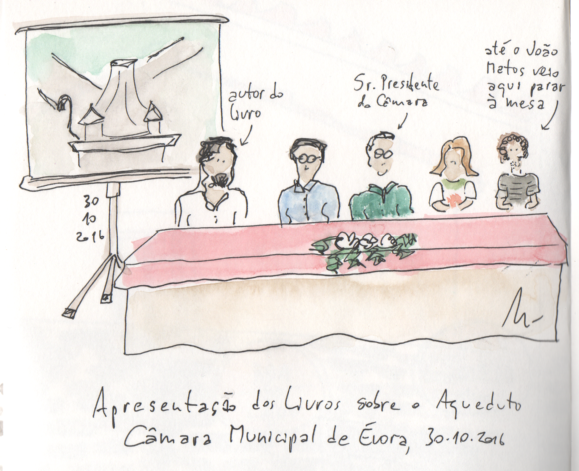 autor do
livro
Sr. Presidente
da Câmara
até o João
Matos veio
aqui parar
à mesa
30
10
2016
Apresentação dos Livros sobre o Aqueduto
Câmara Municipal de Évora, 30.10.2016